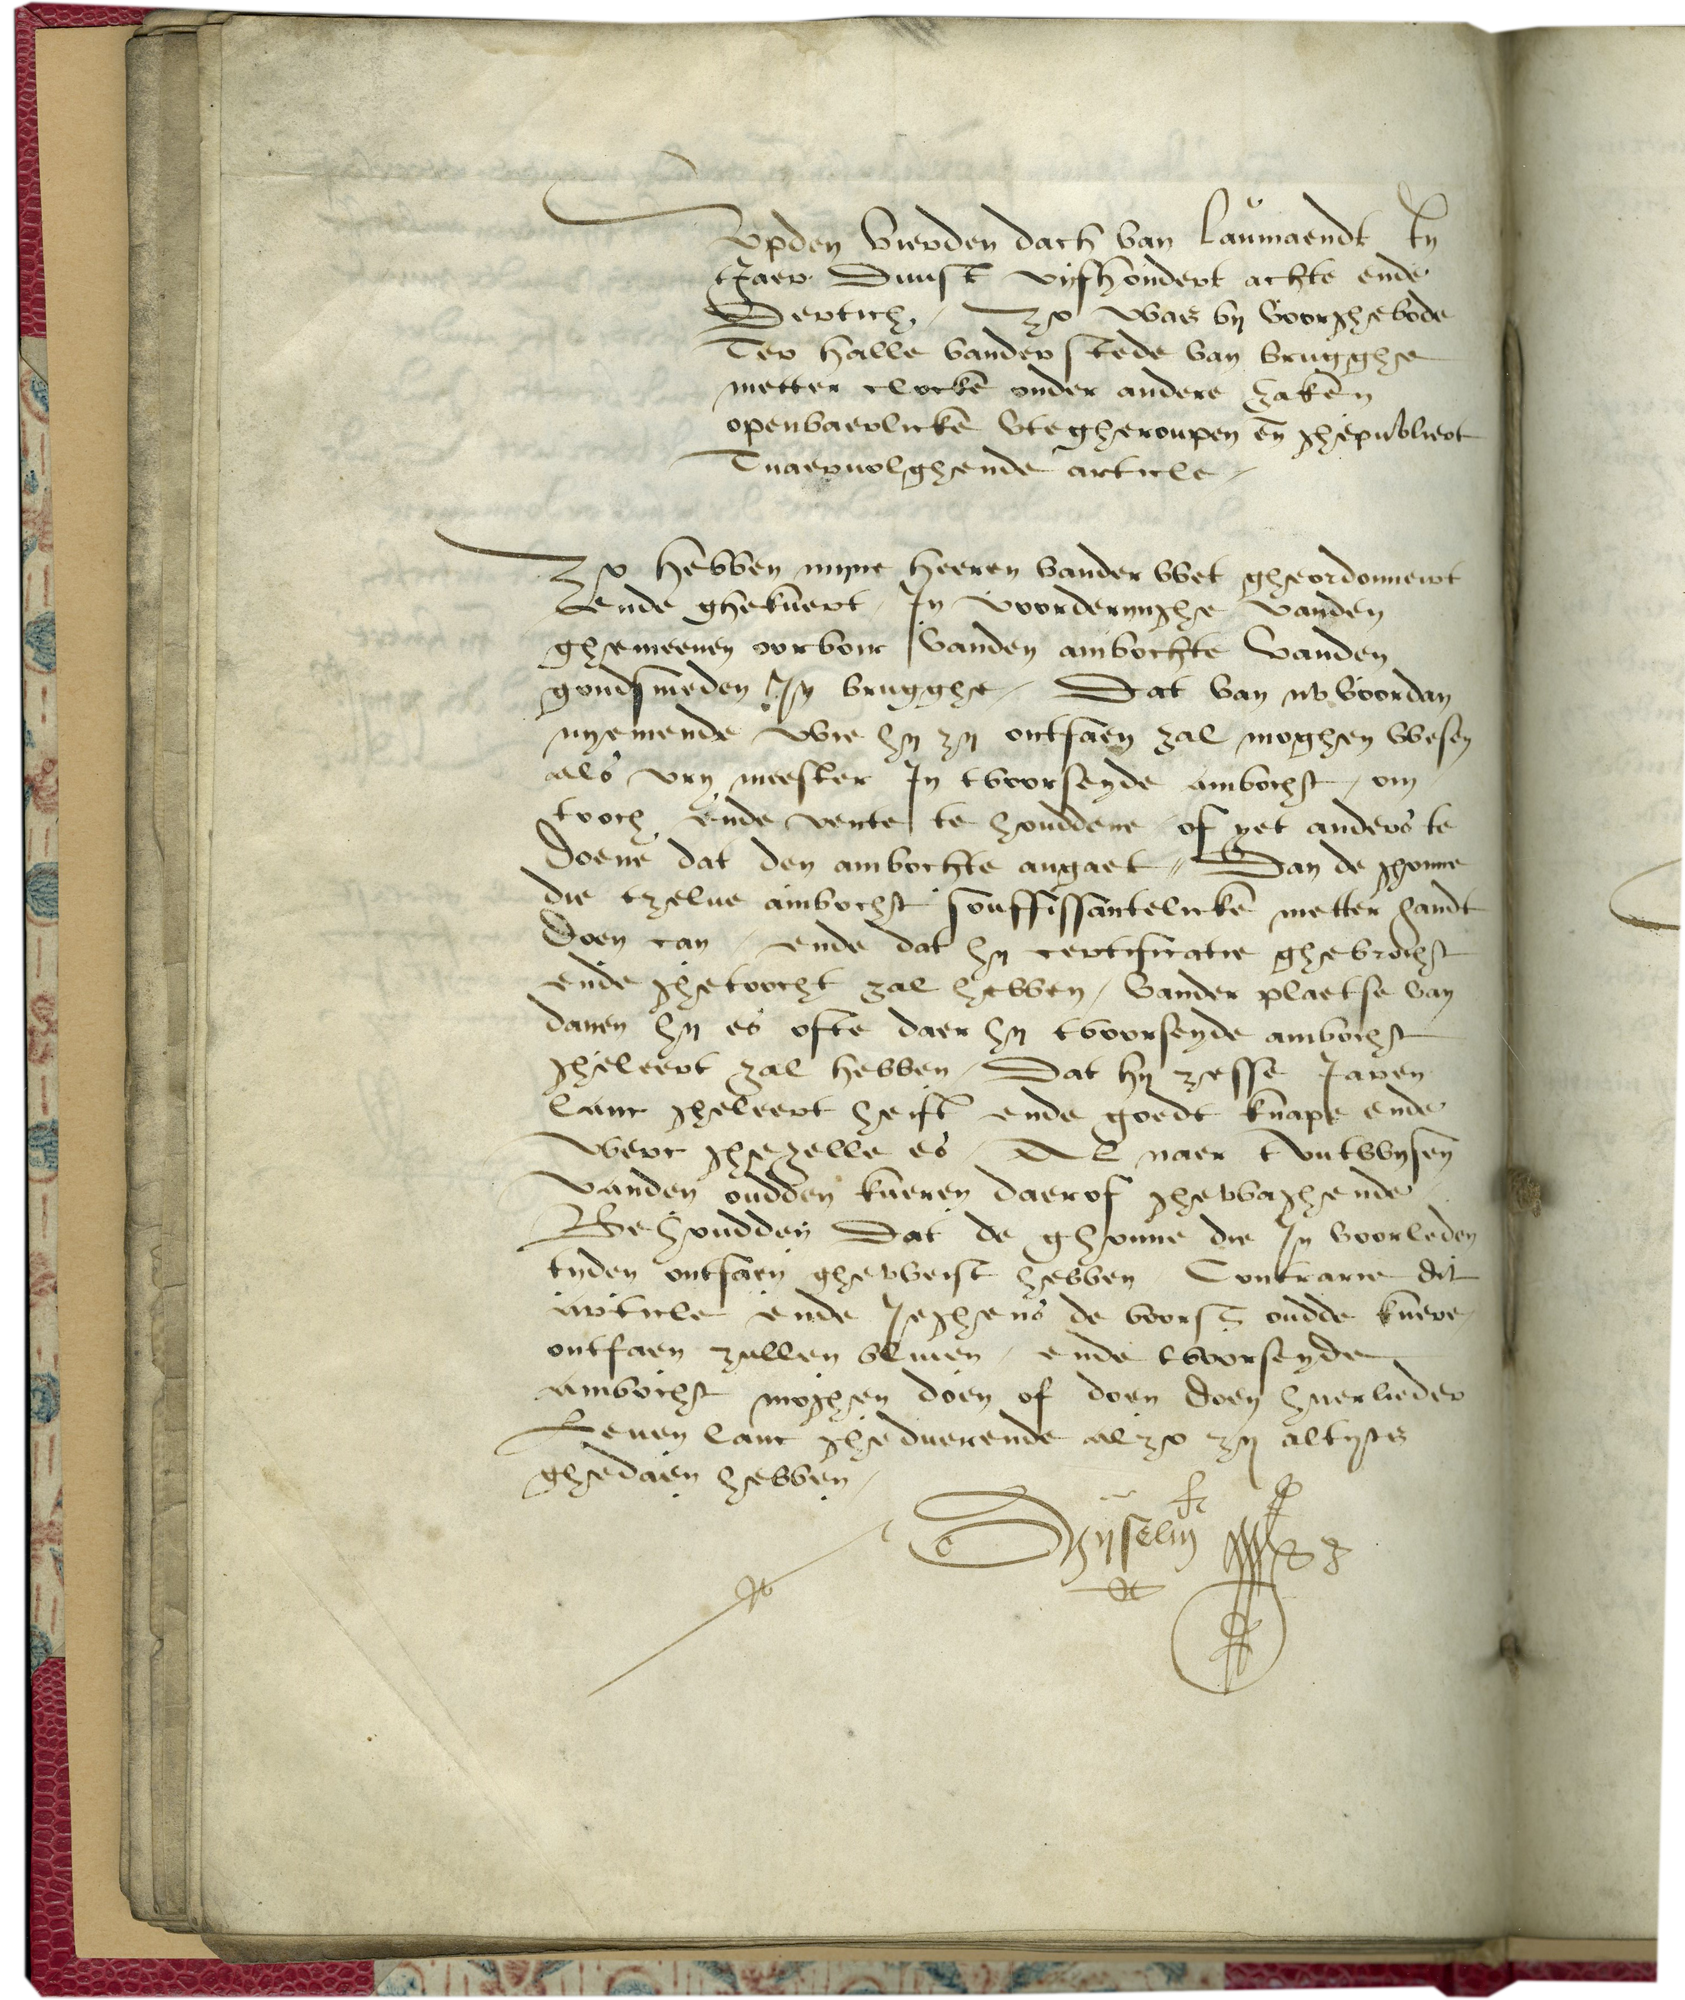 Vpden vierden dach van Laumaendt In
tJaer Duust vijfhondert achte ende
Dertich, Zo was by voorghebode
Ter halle vander stede van brugghe
metter clocke onder andere zaken
openbaerlicke vteghheroupen en ghepubliert
Tnaervolghende article
Zo hebben myne heeren vander wet gheordonneirt
ende ghekuert, In voorderynghe vanden
ghemeenen oorboir vanden ambochte vanden
goudsmeden In brugghe, Dat van nv voordan
nyemende wie hy zy ontfaen zal moghen wesen
als vry meester In tvoorseyde ambocht, om
tooch ende vente te houddene of yet anders te
doene dat den ambochte angaet, Dan de ghonne
die tzelue ambocht souffissantelicke metter handt
doen can, ende dat hy certificatie ghebrocht
ende ghetoocht zal hebben, vander plaetse van
danen hy es ofte daer hy tvoorseyde ambocht
gheleert zal hebben, Dat hy zesse Jaren
lanc gheleert heift ende goedt knape ende
werc ghezelle es, Al naer tvutwysen
vanden oudden kueren daerof ghewaghende
Behoudden Dat de ghonne die In voorleden
tyden ontfaen gheweist hebben Contrarie dit
article ende Jeghens de voors oudde kuere,
ontfaen zullen bliuen, ende tvoorseyde
ambocht moghen doen of doen doen huerlieder
Leuen lanc gheduerende alzo zy altyts
ghedaen hebben,